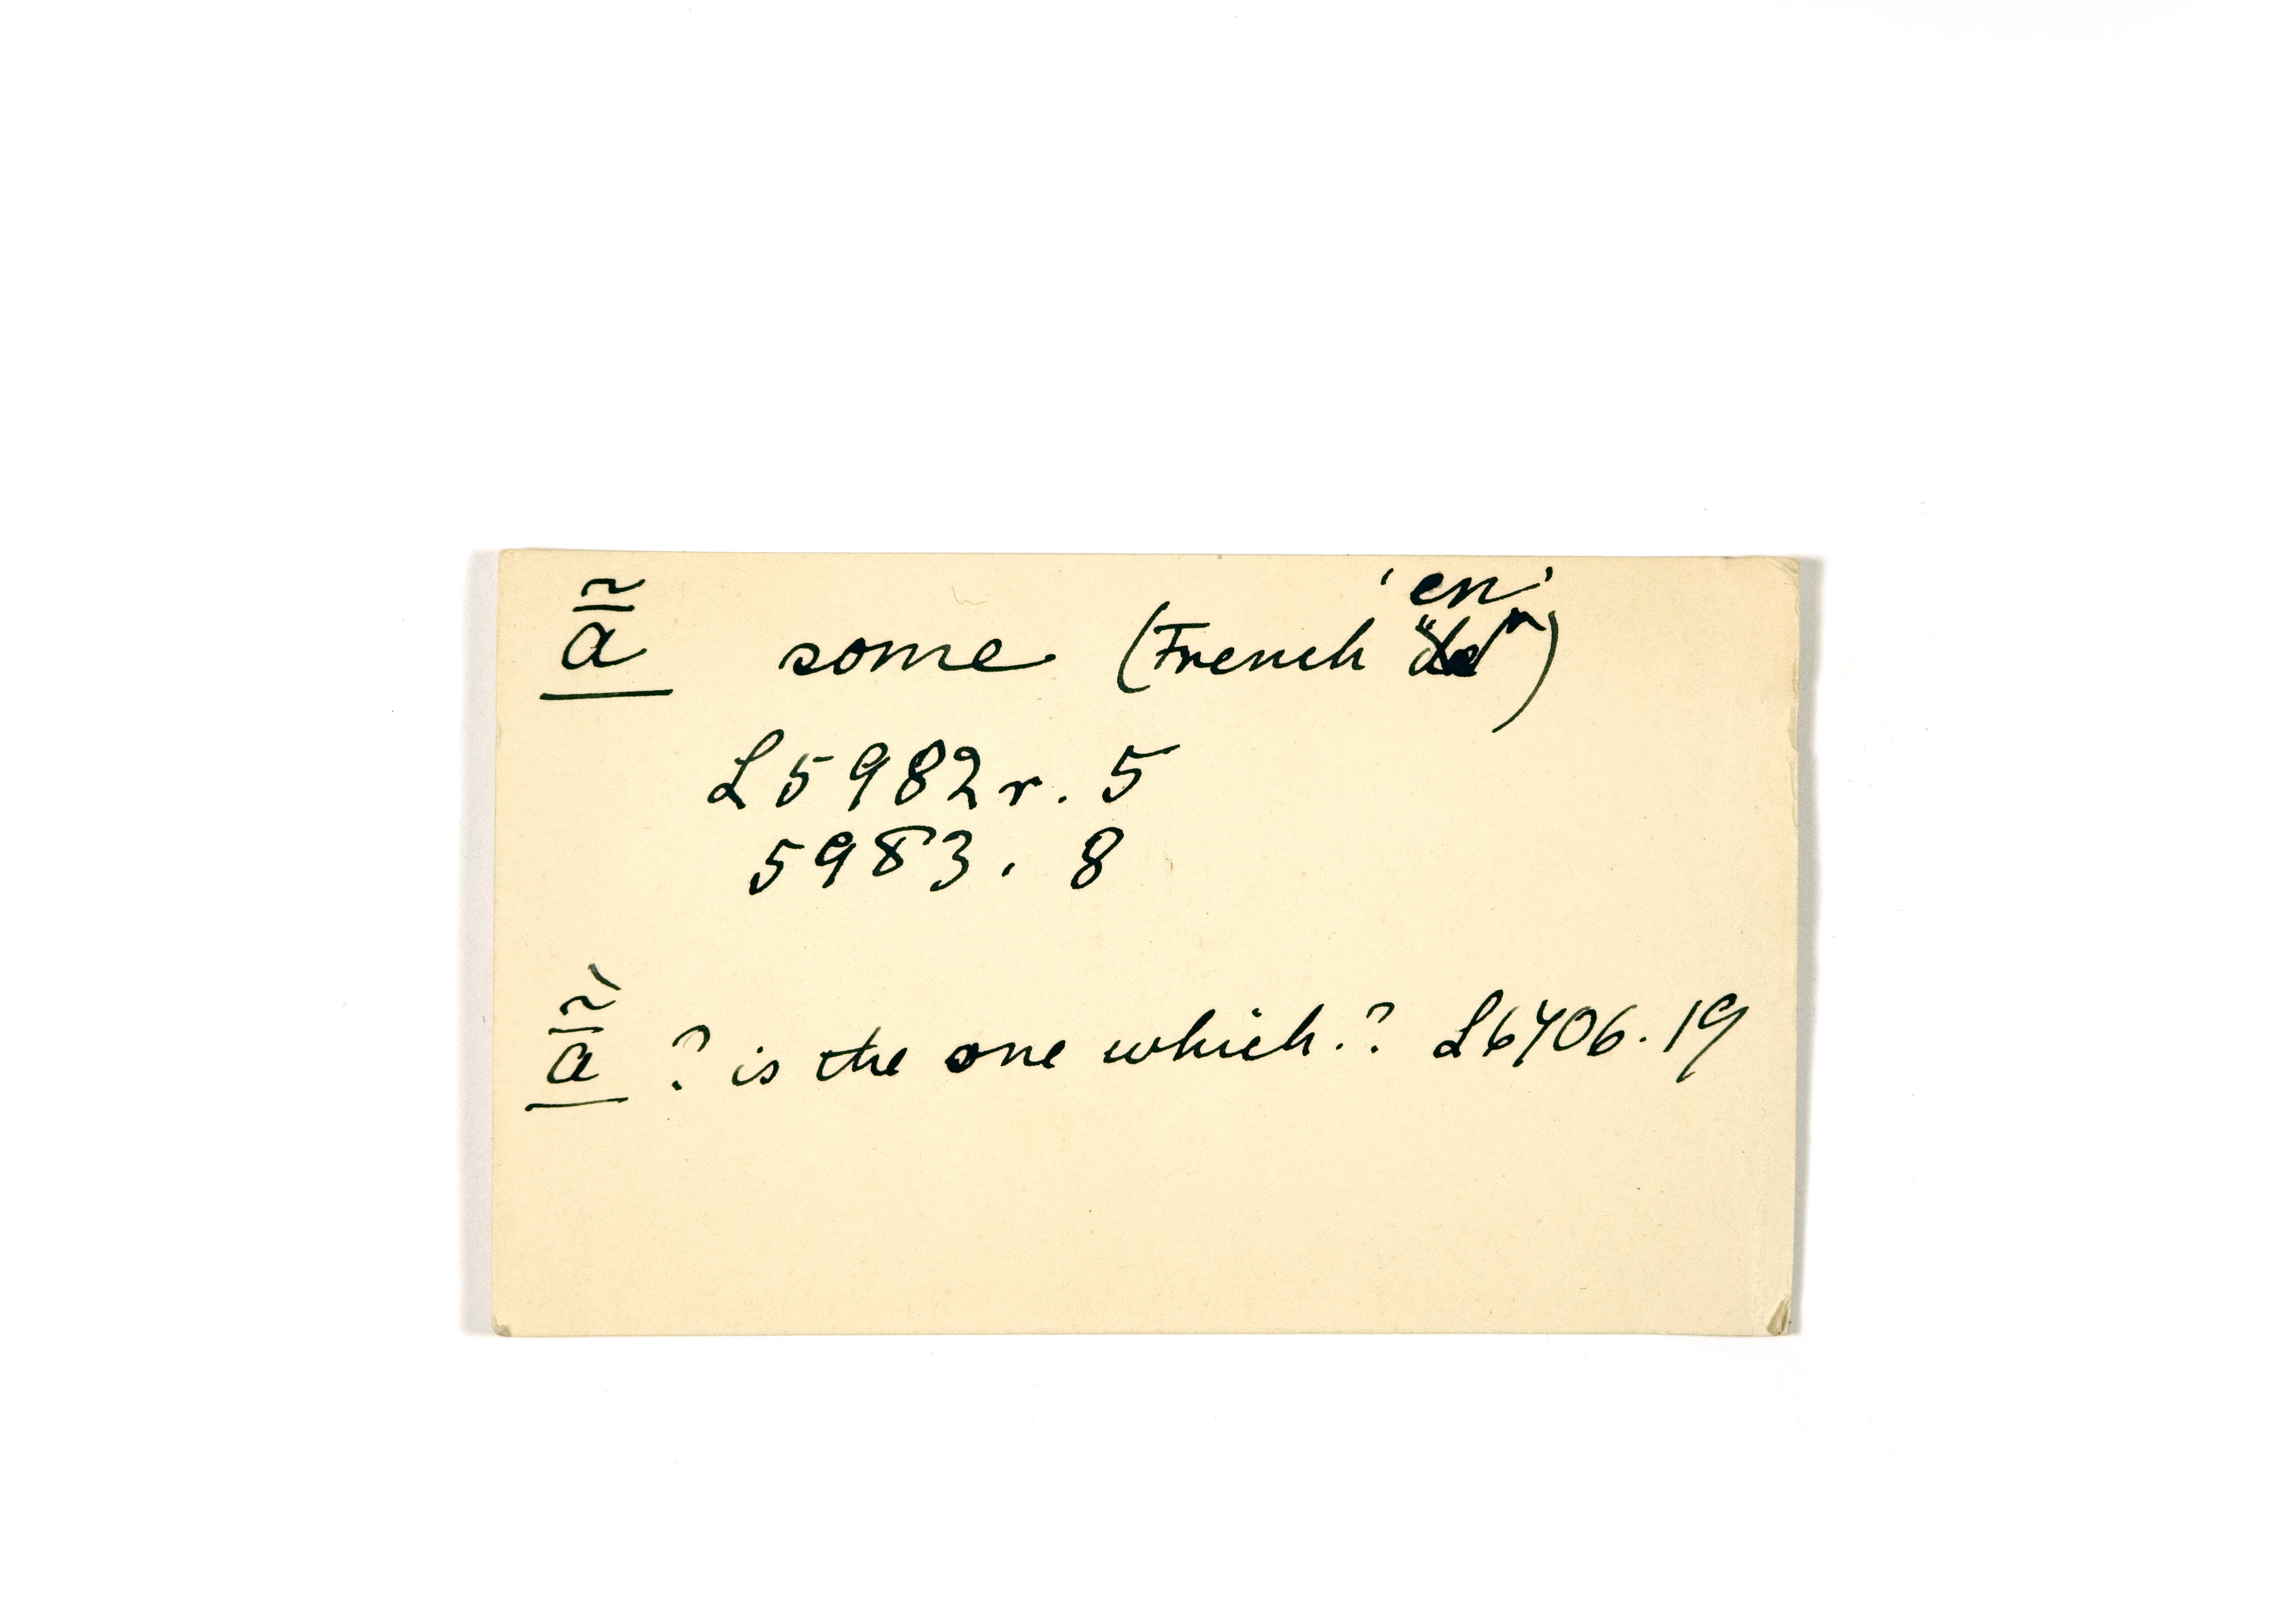 ā̃ some (French 'en')
L5982r. 5
5983. 8
ā̃́ ? is the one which.? L6706.19